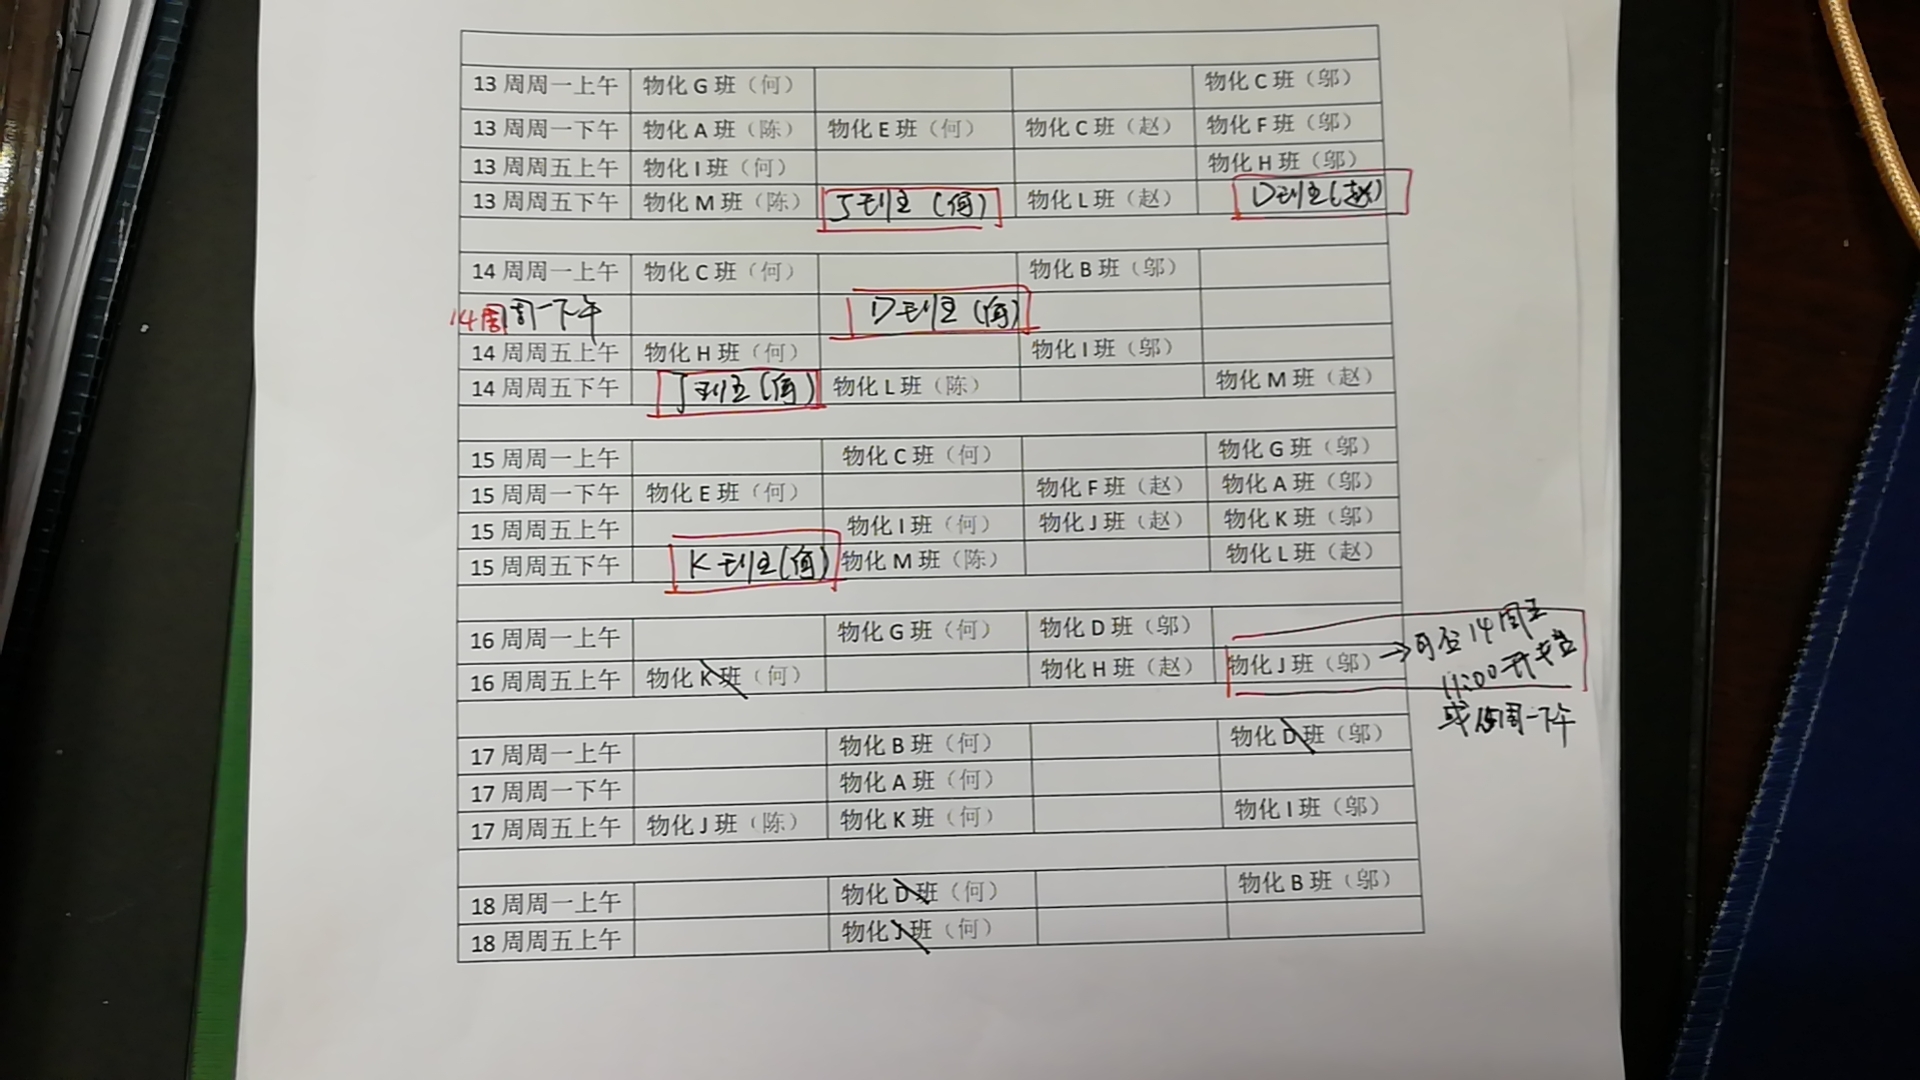 13 周周一上午 物化 G 班（何） 物化 C 班（邬）
13 周周一下午 物化 A 班（陈） 物化 E 班（何） 物化 C 班（赵） 物化 F 班（邬）
13 周周五上午 物化 I 班（何） 物化 H 班（邬）
13 周周五下午 物化 M 班（陈） J班（何） 物化 L 班（赵） D班（赵）
14 周周一上午 物化 C 班（何） 物化 B 班（邬）
14周周一下午 D班（何）
14 周周五上午 物化 H 班（何） 物化 I 班（邬）
14 周周五下午 J班（何） 物化 L 班（陈） 物化 M 班（赵）
15 周周一上午 物化 C 班（何） 物化 G 班（邬）
15 周周一下午 物化 E 班（何） 物化 F 班（赵） 物化 A 班（邬）
15 周周五上午 物化 I 班（何） 物化 J 班（赵） 物化 K 班（邬）
15 周周五下午 K班（何） 物化 M 班（陈） 物化 L 班（赵）
16 周周一上午 物化 G 班（何） 物化 D 班（邬）
16 周周五上午 物化 K 班（何） 物化 H 班（赵） 物化 J 班（邬） → 可在14周五
11:00开
或15周一下午
17 周周一上午 物化 B 班（何） 物化 D 班（邬）
17 周周一下午 物化 A 班（何）
17 周周五上午 物化 J 班（陈） 物化 K 班（何） 物化 I 班（邬）
18 周周一上午 物化 D 班（何） 物化 B 班（邬）
18 周周五上午 物化 J 班（何）